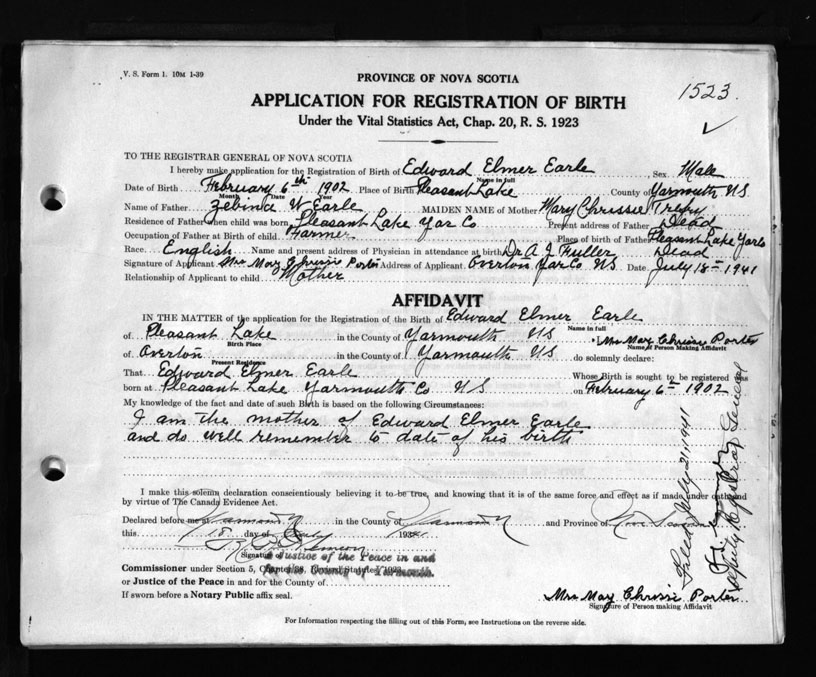 V. S. Form 1. 10M 1-39
PROVINCE OF NOVA SCOTIA
1523.
APPLICATION FOR REGISTRATION OF BIRTH
Under the Vital Statistics Act, Chap. 20, R. S. 1923
TO THE REGISTRAR GENERAL OF NOVA SCOTIA
I hereby make application for the Registration of Birth of Edward Elmer Earle Sex Male
Name in full
Date of Birth February 6th 1902 Place of Birth Pleasant Lake County of Yarmouth NS
Month Date Year
Name of Father Zebina W Earle MAIDEN NAME of Mother Mary Chrissie
Residence of Father when child was born Pleasant Lake Yar Co Present address of Father Dead
Occupation of Father at Birth of child Farmer Place of birth of Father Pleasant Lake Yar Co
Race English Name and present address of Physician in attendance at birth Dr A J Fuller Dead
Signature of Applicant Mrs May Chrissie Porter Address of Applicant Overton Yar Co NS Date July 18th 1941
Relationship of Applicant to child Mother
AFFIDAVIT
IN THE MATTER of the application for the Registration of the Birth of Edward Elmer Earle
Name in full
of Pleasant Lake in the County of Yarmouth NS Mrs May Chrissie Porter
Birth Place Name of Person Making Affidavit
of Overton in the County of Yarmouth NS do solemnly declare:
Present Residence
That Edward Elmer Earle Whose Birth is sought to be registered was
born at Pleasant Lake Yarmouth Co NS on February 6th 1902
My knowledge of the fact and date of such Birth is based on the following Circumstances:
I am the mother of Edward Elmer Earle
and do well remember to date of his birth
I make this solemn declaration conscientiously believing it to be true, and knowing that it is of the same force and effect as if made under oath and
by virtue of The Canada Evidence Act.
Declared before me at Yarmouth in the County of Yarmouth and Province of Nova Scotia
this 18 day of July 193
Signature of
a Justice of the Peace in and
Commissioner under Section 5, Chapter 38, Revised Statutes 1923
for the County of Yarmouth.
or Justice of the Peace in and for the County of
If sworn before a Notary Public affix seal.
Mrs May Chrissie Porter
Signature of Person making Affidavit
For Information respecting the filling out of this Form, see Instructions on the reverse side.
Filed July 21, 1941
Deputy Registrar General